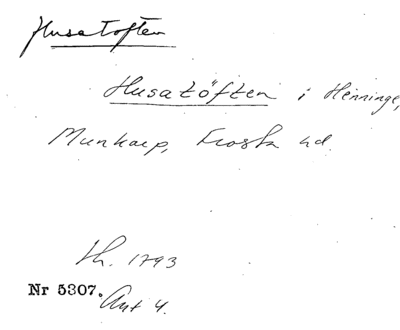 Husatoften
Husatöften i Henninge,
Munkarp, Frosta hd.
Sk. 1793
Nr 5307.
Akt 4.